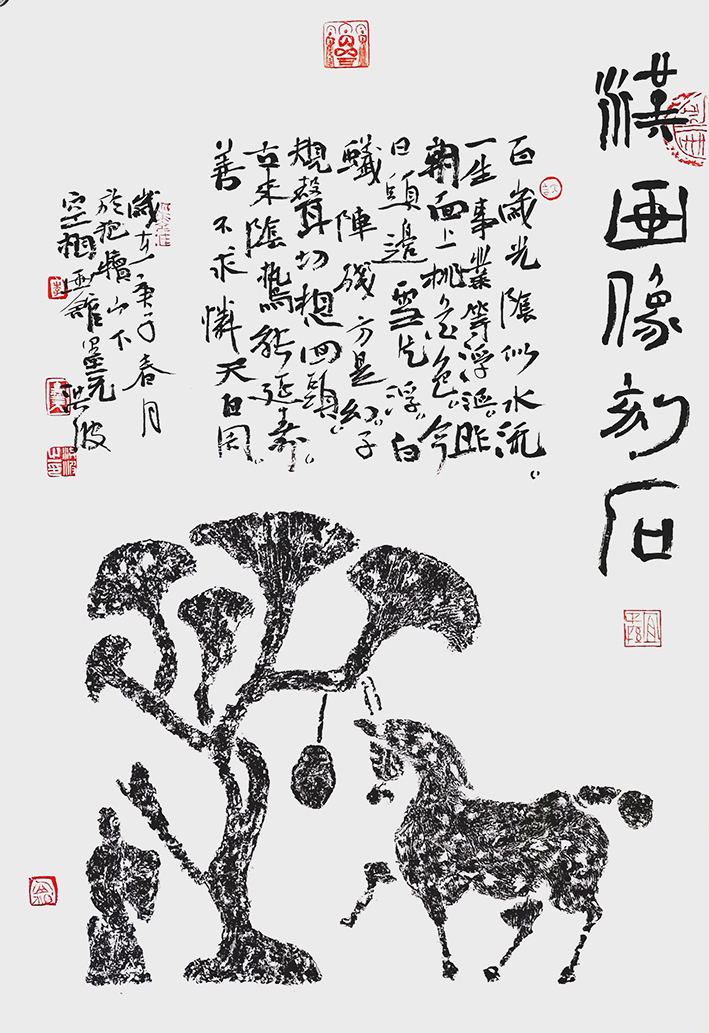 漢画像刻石
百歲光陰似水流
一生事業等浮漚昨
朝面上桃花色今
日頭邊雪片浮白
蟻陣殘方是幻子
規聲切想回頭
古來陰騭能延壽
善不求憐天自周
歲在庚子春月
於抱犢山下
空相画館 洪波